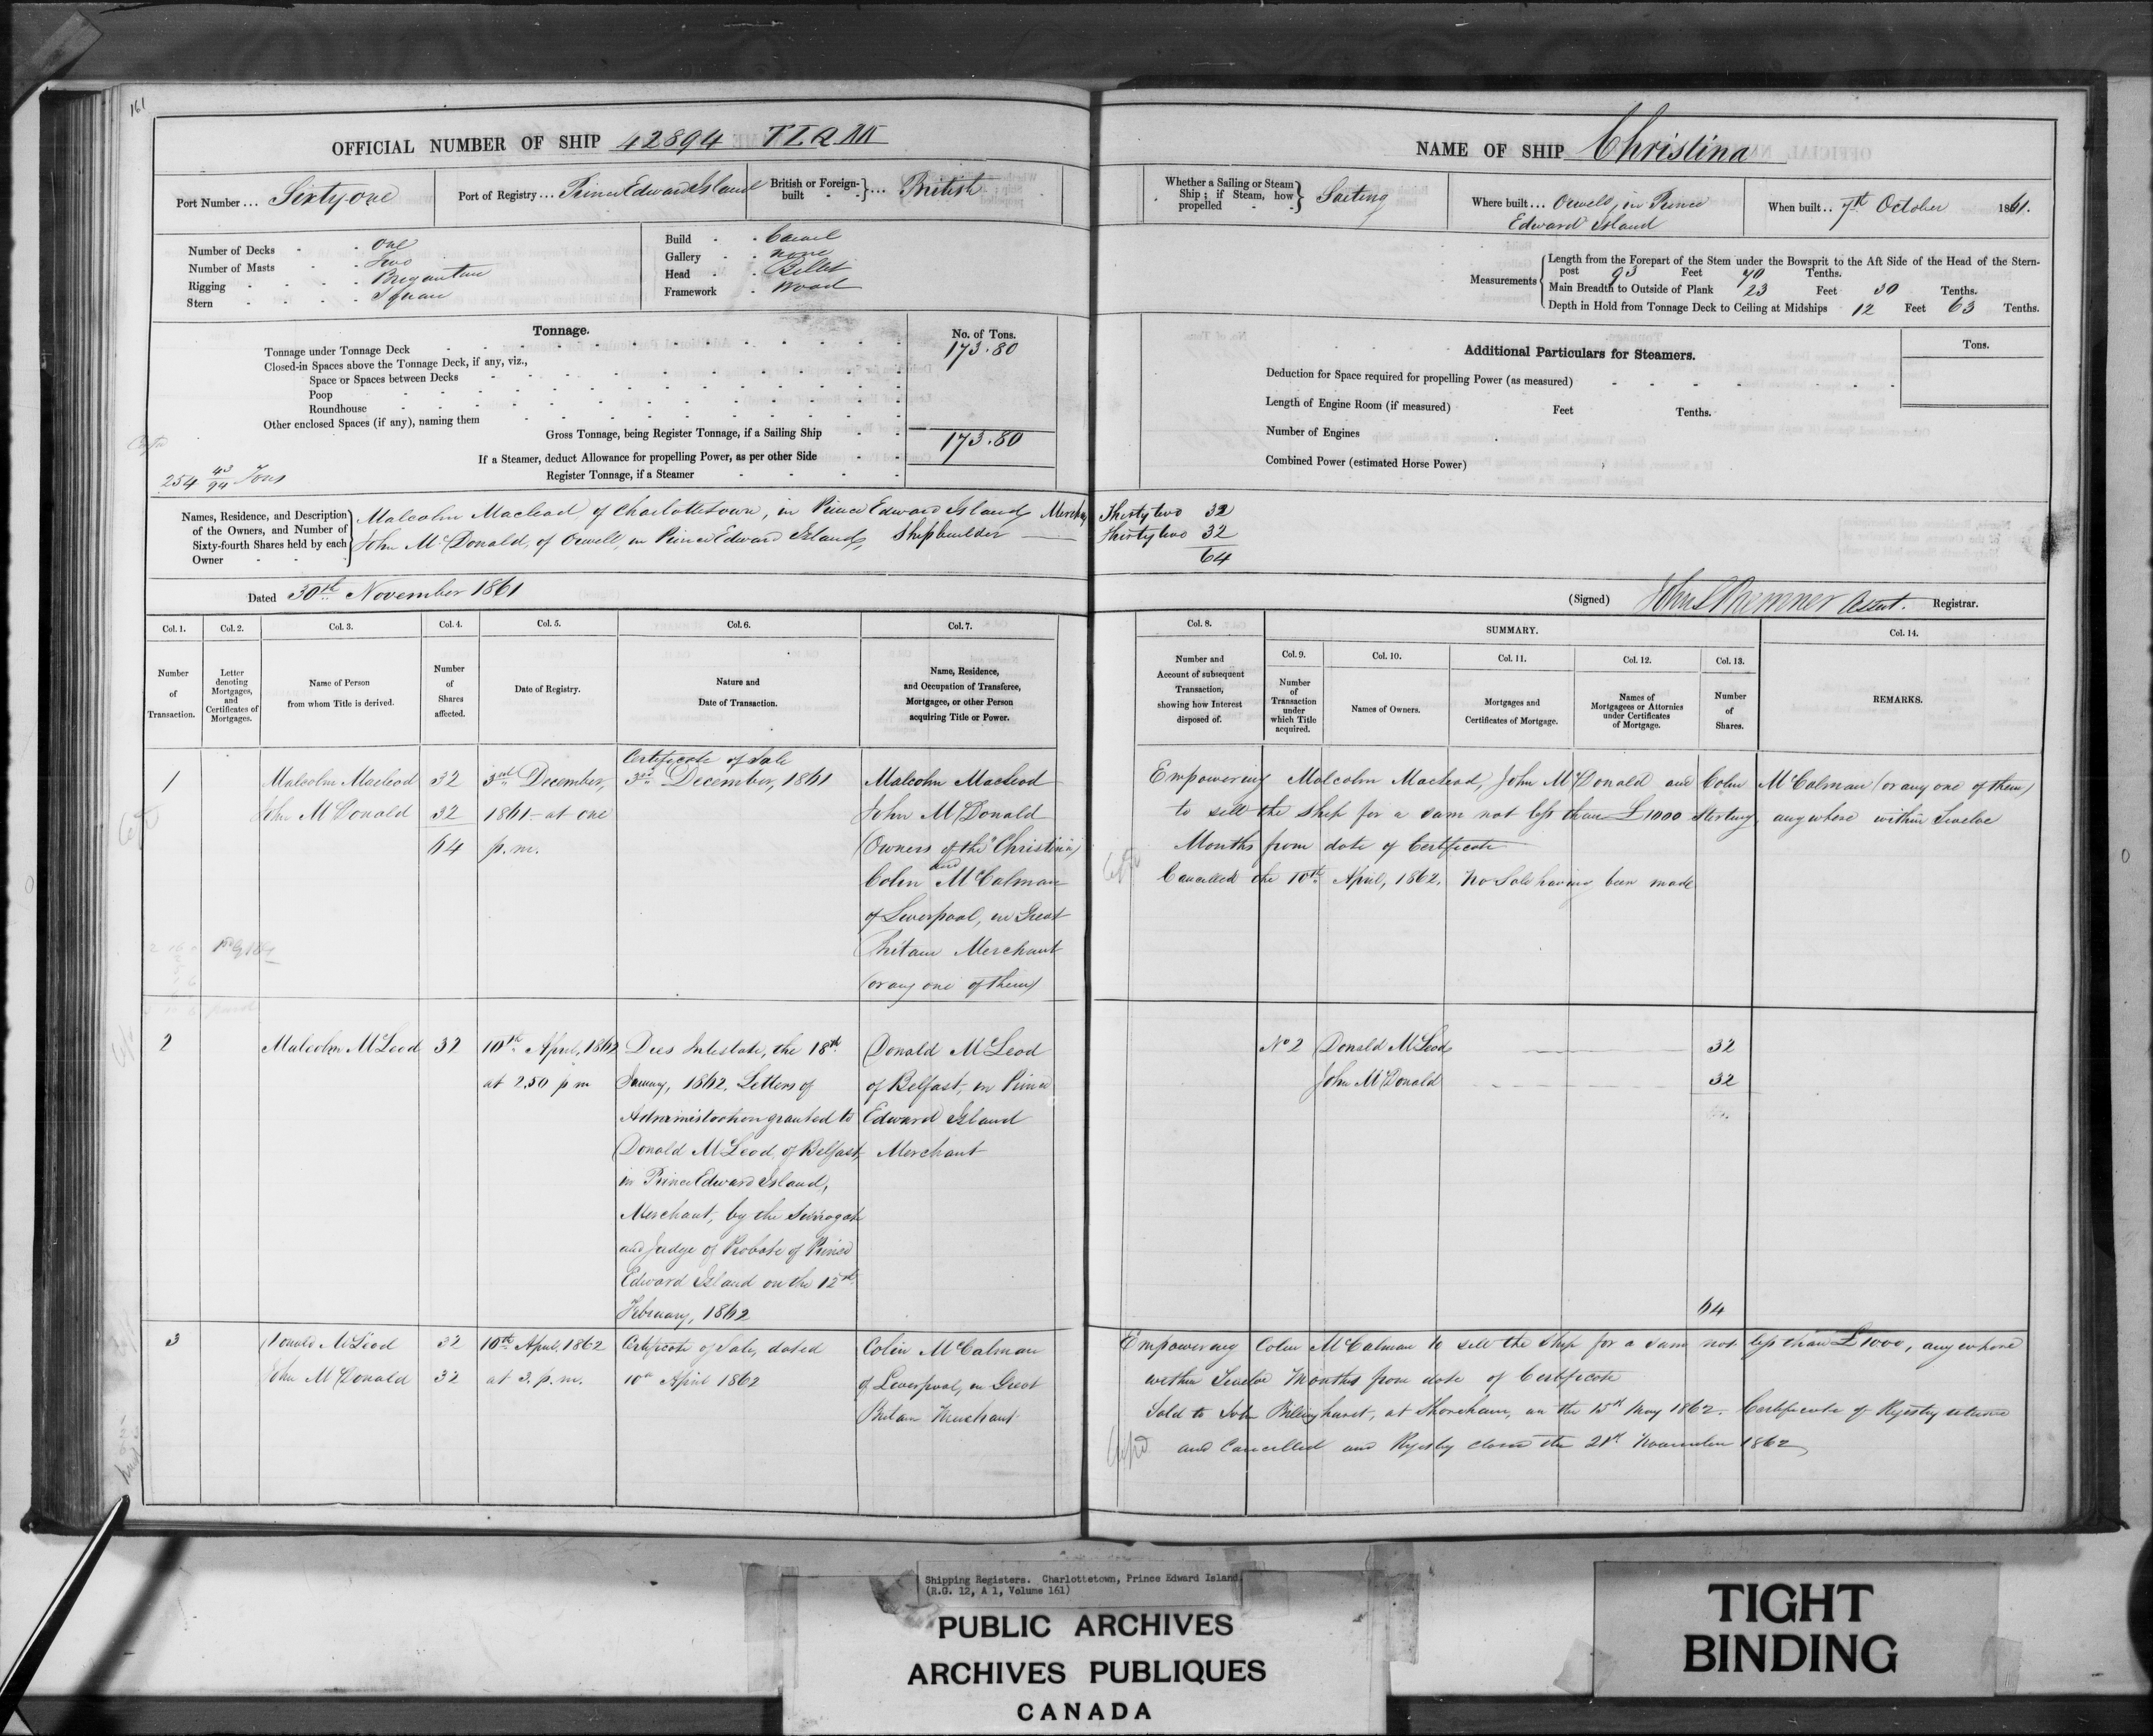 161
OFFICIAL NUMBER OF SHIP 42894
NAME OF SHIP Christina
Port Number ... Sixty-one
Port of Registry ... Prince Edward Island
British or Foreign-built } ... British
Whether a Sailing or Steam Ship; if Steam, how propelled } Sailing
Where built ... Orwell, in Prince
Edward Island
When built .. 7th October 1861.
Number of Decks - - One
Number of Masts - - Two
Rigging - - - - Brigantine
Stern - - - - Square
Build - - Carvel
Gallery - - none
Head - - Billet
Framework - Wood
Measurements { Length from the Forepart of the Stem under the Bowsprit to the Aft Side of the Head of the Stern-
post 93 Feet 70 Tenths.
Main Breadth to Outside of Plank 23 Feet 30 Tenths.
Depth in Hold from Tonnage Deck to Ceiling at Midships 12 Feet 63 Tenths.
Tonnage.
No. of Tons.
Tonnage under Tonnage Deck 173.80
Closed-in Spaces above the Tonnage Deck, if any, viz.,
Space or Spaces between Decks
Poop
Roundhouse
Other enclosed Spaces (if any), naming them
Gross Tonnage, being Register Tonnage, if a Sailing Ship 173.80
If a Steamer, deduct Allowance for propelling Power, as per other Side
Register Tonnage, if a Steamer
254 43/94 Tons
Additional Particulars for Steamers.
Tons.
Deduction for Space required for propelling Power (as measured)
Length of Engine Room (if measured) Feet Tenths.
Number of Engines
Combined Power (estimated Horse Power)
Names, Residence, and Description
of the Owners, and Number of
Sixty-fourth Shares held by each
Owner
Malcolm Macleod, of Charlottetown, in Prince Edward Island, Merchant Thirty two 32
John McDonald, of Orwell, in Prince Edward Island, Shipbuilder Thirty two 32
64
Dated 30th November 1861
(Signed) Assist. Registrar.
Col. 1.
Number
of
Transaction.
Col. 2.
Letter
denoting
Mortgages,
and
Certificates of
Mortgages.
Col. 3.
Name of Person
from whom Title is derived.
Col. 4.
Number
of
Shares
affected.
Col. 5.
Date of Registry.
Col. 6.
Nature and
Date of Transaction.
Col. 7.
Name, Residence,
and Occupation of Transferee,
Mortgagee, or other Person
acquiring Title or Power.
Col. 8.
Number and
Account of subsequent
Transaction,
showing how Interest
disposed of.
SUMMARY.
Col. 9.
Number
of
Transaction
under
which Title
acquired.
Col. 10.
Names of Owners.
Col. 11.
Mortgages and
Certificates of Mortgage.
Col. 12.
Names of
Mortgagees or Attornies
under Certificates
of Mortgage.
Col. 13.
Number
of
Shares.
Col. 14.
REMARKS.
1
Malcolm Macleod 32
John McDonald 32
64
3rd December,
1861 at one
p.m.
Certificate of Sale
3rd December, 1861
Malcolm Macleod
John McDonald
(Owners of the "Christina")
and
Colin McCalman
of Liverpool, in Great
Britain Merchant
(or any one of them)
Empowering Malcolm Macleod, John McDonald and Colin McCalman (or any one of them)
to sell the Ship for a sum not less than £1000 Sterling anywhere within Twelve
Months from date of Certificate
Cancelled the 10th April, 1862. No Sale having been made
2
Malcolm McLeod 32
10th April, 1862
at 2.50 p m
Dies Intestate, the 18th
January, 1862. Letters of
Administration granted to
Donald McLeod, of Belfast,
in Prince Edward Island,
Merchant, by the Surrogate
and Judge of Probate of Prince
Edward Island on the 12th
February, 1862
Donald McLeod
of Belfast, in Prince
Edward Island
Merchant
No 2 Donald McLeod 32
John McDonald 32
64
3
Donald McLeod 32
John McDonald 32
10th April, 1862
at 3. p. m.
Certificate of Sale, dated
10th April 1862
Colin McCalman
of Liverpool, in Great
Britain Merchant
Empowering Colin McCalman to sell the Ship for a sum not less than £1000, anywhere
within Twelve Months from date of Certificate
Sold to John Billinghurst, at Shoreham, on the 15th May 1862. Certificate of Registry returned
and Cancelled and Registry closed the 21st November 1862
Shipping Registers. Charlottetown, Prince Edward Island.
(R.G. 12, A 1, Volume 161)
PUBLIC ARCHIVES
ARCHIVES PUBLIQUES
CANADA
TIGHT
BINDING